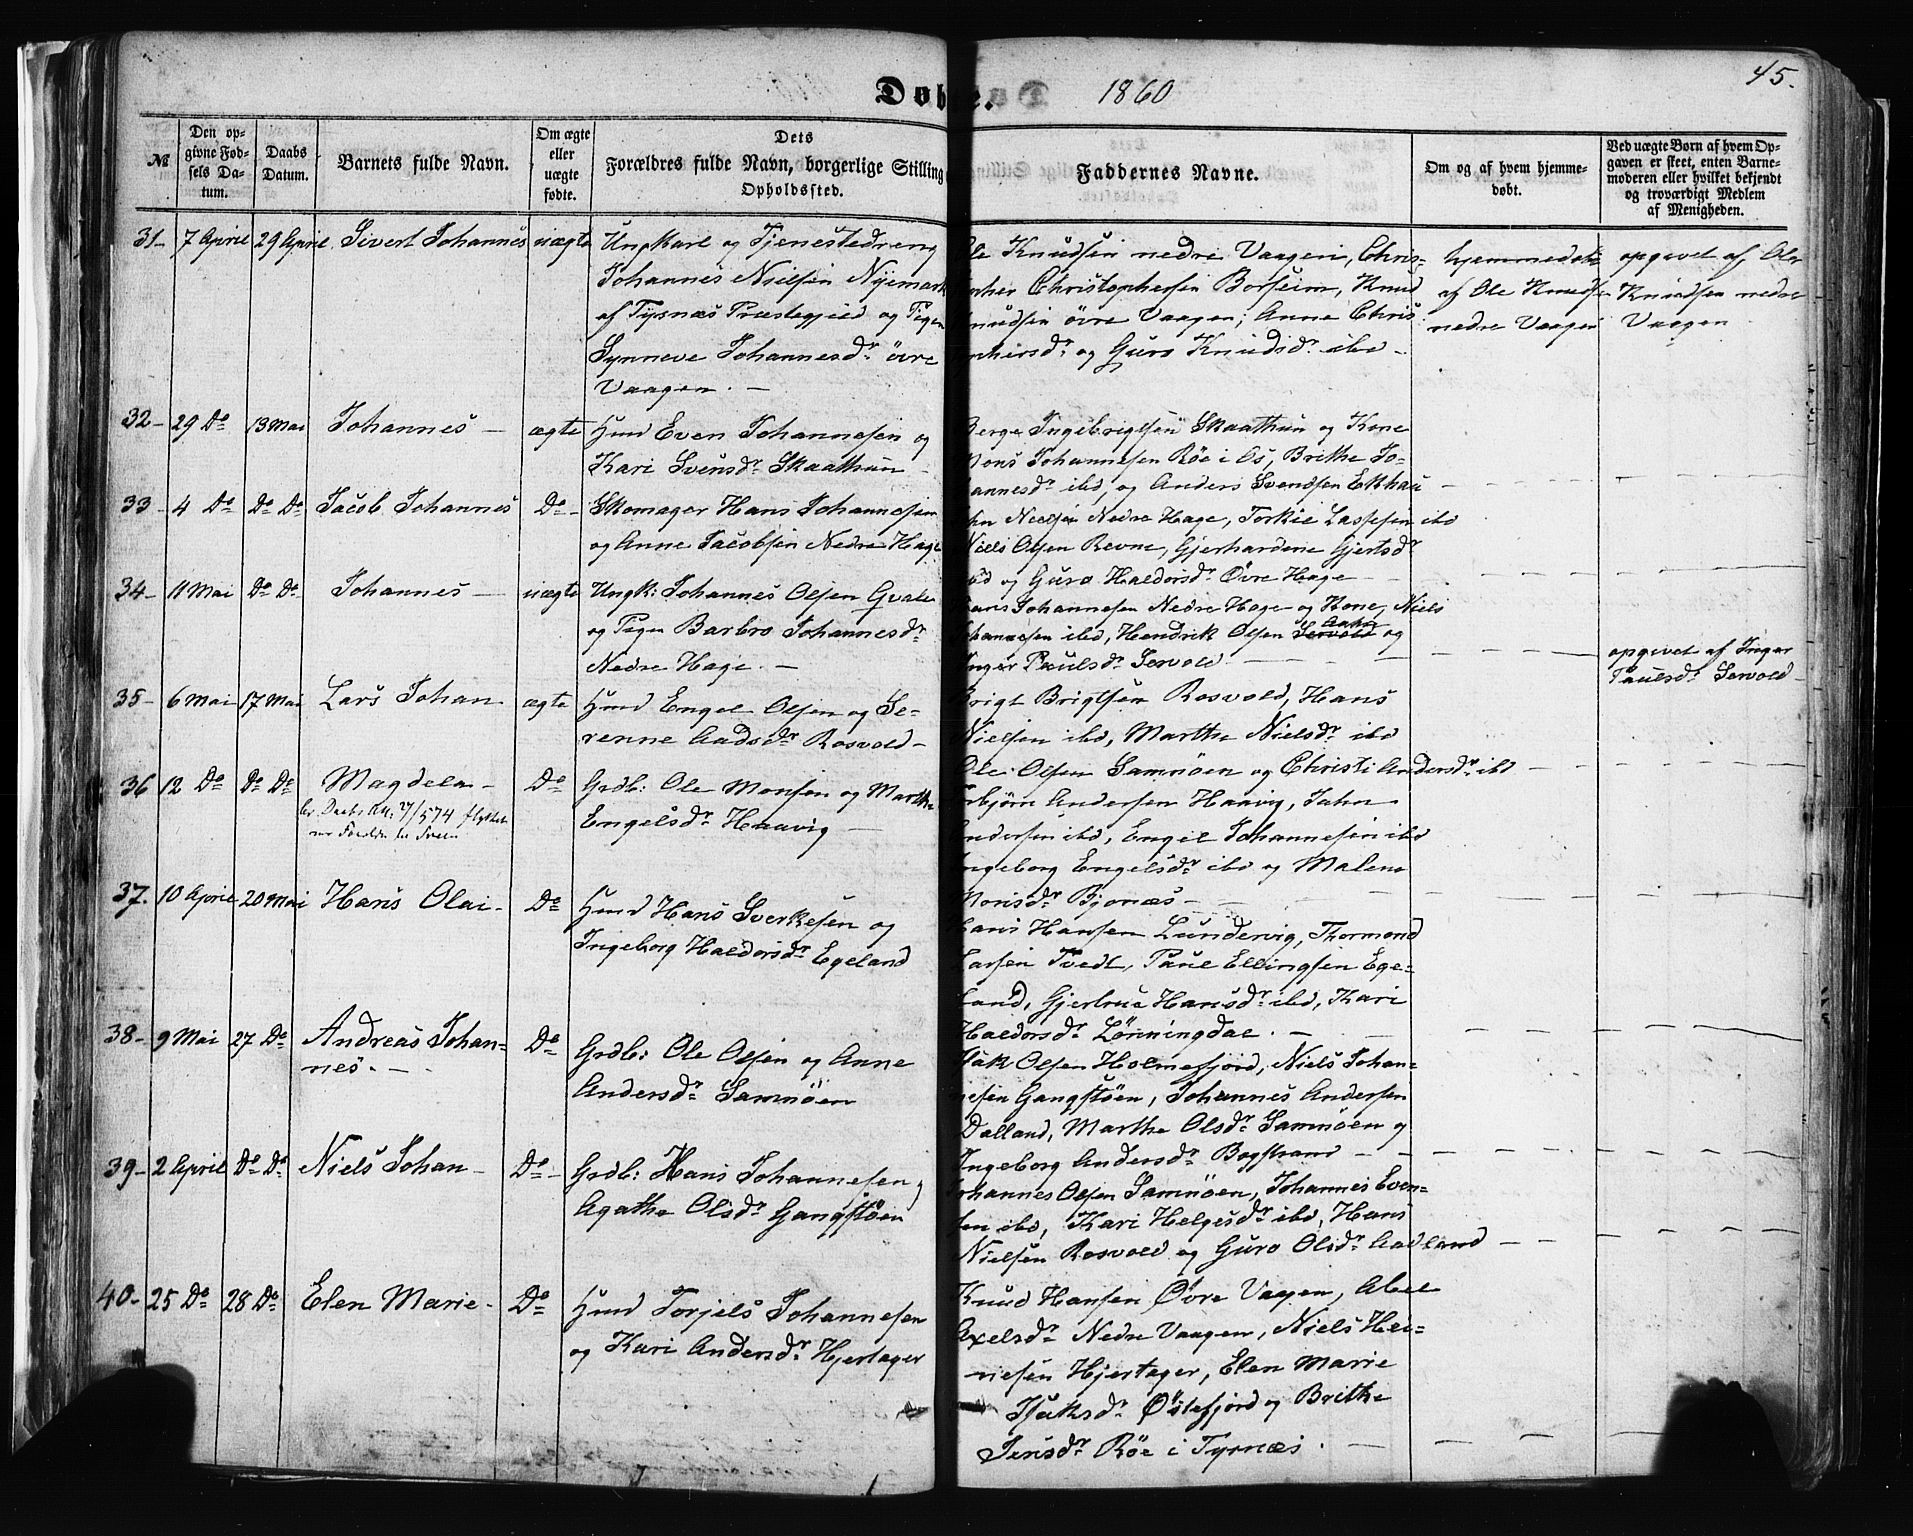 45.
Døbte. 1860
№
Den op-
givne Fød-
sels Da-
tum.
Daabs
Datum.
Barnets fulde Navn.
Om ægte
eller
uægte
fødte.
Dets
Forældres fulde Navn, borgerlige Stilling
Opholdssted.
Faddernes Navne.
Om og af hvem hjemme-
døbt.
Ved uægte Børn af hvem Op-
gaven er skeet, enten Barne-
moderen eller hvilket bekjendt
og troværdigt Medlem
af Menigheden.
31- 7 April 29 April Sivert Johannes uægte
Ungkarl og Tjenestedreng
Johannes Nielsen Nyemark
af Tysnæs Præstegjeld og Pigen
Synneve Johannesdr øvre
Vaagen. -
Ole Knudsen nedre Vaagen, Chris-
Christophersen Borseim, Knud
Knudsen øvre Vaagen, Anne Chris
og Guro Knudsdr ibd -
hjemmedøbt
af Ole Knudsen
nedre Vaagen
opgivet af Ole
Knudsen nedre
Vaagen
32- 29 Do 13 Mai Johannes - ægte
Husmd Even Johannesen og
Kari Svensdr Skaathun -
Berge Ingebrigtsen Skaathun og Kone
Mons Johannesen Røe i Os, Brithe Jo-
hannesdr ibd, og Anders Svendsen Ekhau
33- 4 Do Do Do Jacob Johannes Do-
Skomager Hans Johannesen
og Anne Jacobsen Nedre Hage
Nielsen Nedre Hage, Torkie Lassesen ibd
Niels Olsen Revne, Gjerhardine Gjertsdr
ibd og Guro Haldorsdr Øvre Hage -
34- 11 Mai Do Do Johannes - uægte
Ungk: Johannes Olsen Gvale
og Pigen Barbro Johannesdr
Nedre Hage. -
Hans Johannesen Nedre Hage og Kone, Niels
Johannesen ibd, Hendrik Olsen Servold og
Inger Paulsdr Servold
opgivet af Inger
Paulsdr Servold
35- 6 Mai 17 Mai Lars Johan ægte
Husmd Engel Olsen og Se-
renne Aadsdr Rosvold -
Brigt Brigtsen Rosvold, Hans
Nielsen ibd, Marthe Nielsdr ibd
Ole Olsen Samnøen og Christi Andersdr ibd
36 12 Do Do Do Magdela - Do
Grdb: Ole Monsen og Marthe
Engelsdr Haavig -
Torbjørn Andersen Haavig, Jahn
Andersen ibd, Engel Johannesen ibd
Ingeborg Engelsdr ibd og Malene
Monsdr Bjonæs -
37. 10 April 20 Mai Hans Olai - Do
Husmd Hans Sverkesen og
Ingeborg Haldorsdr Egeland
Hans Hansen Lundervig, Thormond
Larsen Tvedt, Paul Ellingsen Ege-
land, Gjertrue Hansdr ibd, Kari
Haldorsdr Lønningdal. -
38- 9 Mai 27 Do Andreas Johan- Do
nes. -
Grdb: Ole Olsen og Anne
Andersdr Samnøen
Isak Olsen Holmefjord, Niels Johan-
nesen Gangstøen, Johannes Andersen
Dalland, Marthe Olsdr Samnøen og
Ingeborg Andersdr Bogstrand
39- 2 April Do Do Niels Johan - Do -
Grdb: Hans Johannesen og
Agathe Olsdr Gangstøen
Johannes Olsen Samnøen, Johannes Even-
sen ibd, Kari Helgesdr ibd, Hans
Nielsen Rosvold og Guro Olsdr Aadland
40- 25 Do 28 Do Elen Marie - Do
Husmd Torjels Johannesen
og Kari Andersdr Hjertager
Knud Hansen Øvre Vaagen, Abel
Axelsdr Nedre Vaagen, Niels Hei-
nesen Hjertager, Elen Marie
Isaksdr Østefjord og Brithe
Jensdr Røe i Tysnæs.